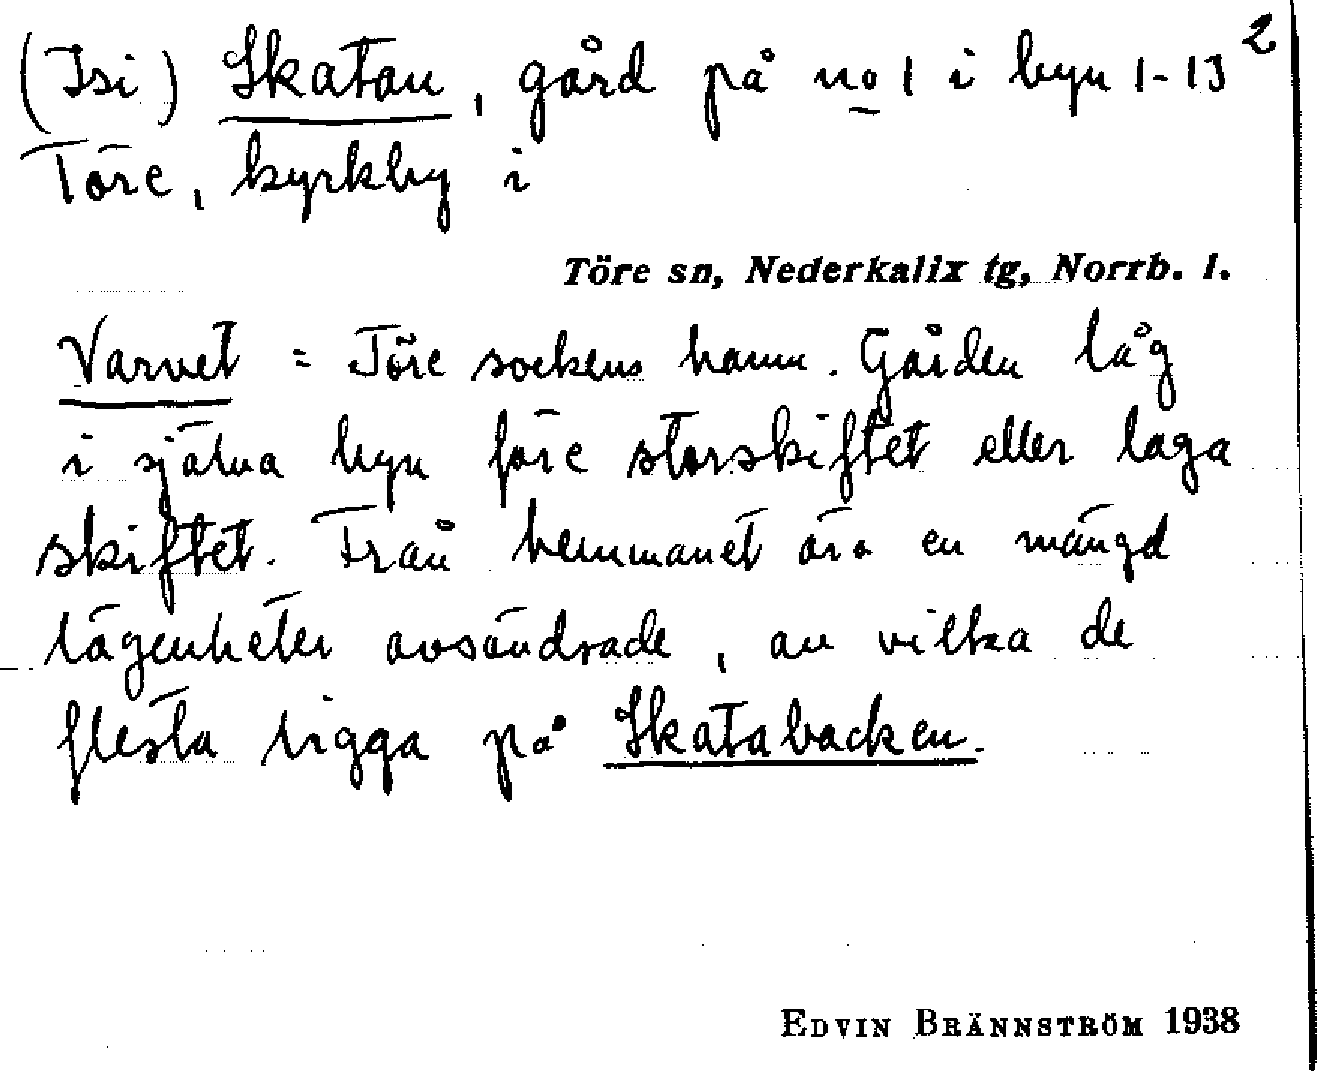 (Isi) Skatan, gård på no 1 i byn 1-13 2
Töre, kyrkby i
Töre sn, Nederkalix tg, Norrb. l.
Varvet = Töre sockens hamn. Gården låg
i själva byn före storskiftet eller laga
skiftet. Från hemmanet äro en mängd
lägenheter avsöndrade, av vilka de
flesta ligga på Skatabacken.
EDVIN BRÄNNSTRÖM 1938